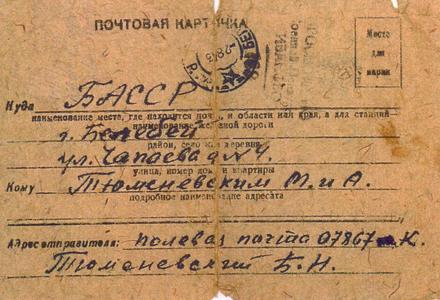 ПОЧТОВАЯ КАРТОЧКА
Место
для
марки
Куда БАССР
наименование места, где находится почта, и области или края, а для станций
наименование железной дороги
г. Белебей
район, село или деревня
ул. Чапаева д № 4.
улица, номер дома и квартиры
Кому Тюменевским М. и А.
подробное наименование адресата
Адрес отправителя: полевая почта 07867 К.
Тюменевский Б. Н.